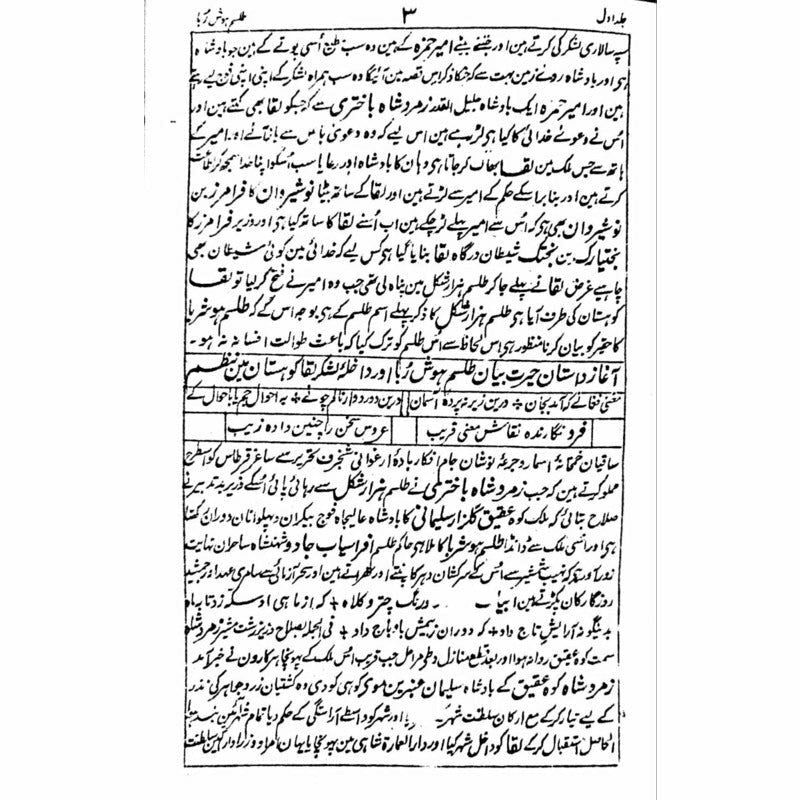 جلد اول ۳ طلسم ہوش رُبا
سپہ سالاری لشکر کی کرتے ہین اور جتنے بیٹے امیر حمزہ کے ہین وہ سب مطیع اُسی پوتے کے ہین جو بادشاہ
ہی اور بادشاہ روے زمین بہت سے کہ جنکا ذکر اس قصہ مین آئیگا وہ سب ہمراہ لشکر کے اپنی اپنی فوج لیے رہتے
ہین اور امیر حمزہ ایک بادشاہ جلیل القدر زمرد شاہ باختری سے کہ جسکو لقا بھی کہتے ہین اور
اُس نے دعوے خدائی کا کیا ہی لڑ رہے ہین اس لیے کہ وہ دعوی باطل سے باز آئے اور امیر کے
ہاتھ سے جس ملک مین لقا بھاگ کر جاتا ہی وہان کا بادشاہ اور رعایا سب اُسکو اپنا خدا سمجھکر اطاعت
کرتے ہین اور بنا بر اسکے حکم کے امیر سے لڑتے ہین اور لقا کے ساتھ بیٹا نوشیروان کا فرامرز بن
نوشیروان بھی ہی کہ اُس سے امیر پہلے لڑ چکے ہین اب اُسنے لقا کا ساتھ کیا ہی اور وزیر فرامرز کا
بختیارک بن بختک شیطان درگاہ لقا بنایا گیا ہی کس لیے کہ خدائی مین کوئی شیطان بھی
چاہیے غرض لقا نے پہلے جاکر طلسم ہزار شکل مین پناہ لی تھی جب وہ امیر نے فتح کر لیا تو لقا
کوہستان کی طرف آیا ہی طلسم ہزار شکل کا ذکر پہلے اسم طلسم کے ہی بوجہ اس کے کہ طلسم ہوشربا
کا حقیر کو بیان کرنا منظور ہی اس لحاظ سے اُس طلسم کو ترک کیا کہ باعث طوالت افسانہ نہ ہو۔
آغاز داستان حیرت بیان طلسم ہوش رُبا اور داخلہ لشکر لقا کوہستان مین نظم
مغنی فغانے کہ آمد بجان + درین زیر نہ پردۂ آسمان درین دور دوار نالم چو نے + بہ احوال جم یا باحوال کے
فرو نگارندہ نقاش معنی فریب عروس سخن را چنین دادہ زیب
ساقیان خمخانۂ اسمار و جرعہ نوشان جام افکار بادۂ ارغوانی شنجرف تحریر سے ساغر قرطاس کو اسطرح
مملو کرتے ہین کہ جب زمرد شاہ باختری نے طلسم ہزار شکل سے رہائی پائی اُسکے وزیر بد تدبیر نے
صلاح بتائی کہ ملک کوہ عقیق گلزار سلیمانی کا بادشاہ عالیجاہ فوج بیکران و پہلوانان دوران رکھتا
ہی اور اُسی ملک سے ڈانڈا طلسم ہوشربا کا ملا ہی حاکم طلسم افراسیاب جادو شہنشاہ ساحران نہایت
زور آور ہی کہ نہیب شمشیر سے اُس کے سرکشان دہر کانپتے اور تھراتے ہین اور سحر آزمائی سے سامری عہد اور جمشید
روزگار کان پکڑتے ہین ابیات ۔ ورنگ چتر و کلاہ + کہ از ماہی او سکہ زد تا بماہ
بدینگونہ آرایش تاج داد + کہ دوران زہیش باو باج داد + فی الجملہ بصلاح وزیر زشت سیر زمرد شاہ
سمت کوہ عقیق روانہ ہوا اور بعد قطع منازل و طی مراحل جب قریب اُس ملک کے پہونچا ہرکارون نے خبر آمد
زمرد شاہ کوہ عقیق کے بادشاہ سلیمان عنبرین موی کو ہی کو دی وہ کشتیان زر و جواہر کی نذر
کے لیے تیار کر کے مع ارکان سلطنت شہر اور شہر کو واسطے آراستگی کے حکم دیا تمام شہر آئین بند ہوا
الحاصل استقبال کر کے لقا کو داخل شہر کیا اور دار العمارۃ شاہی مین پہونچایا یہان امرا و وزرا و اراکین سلطنت